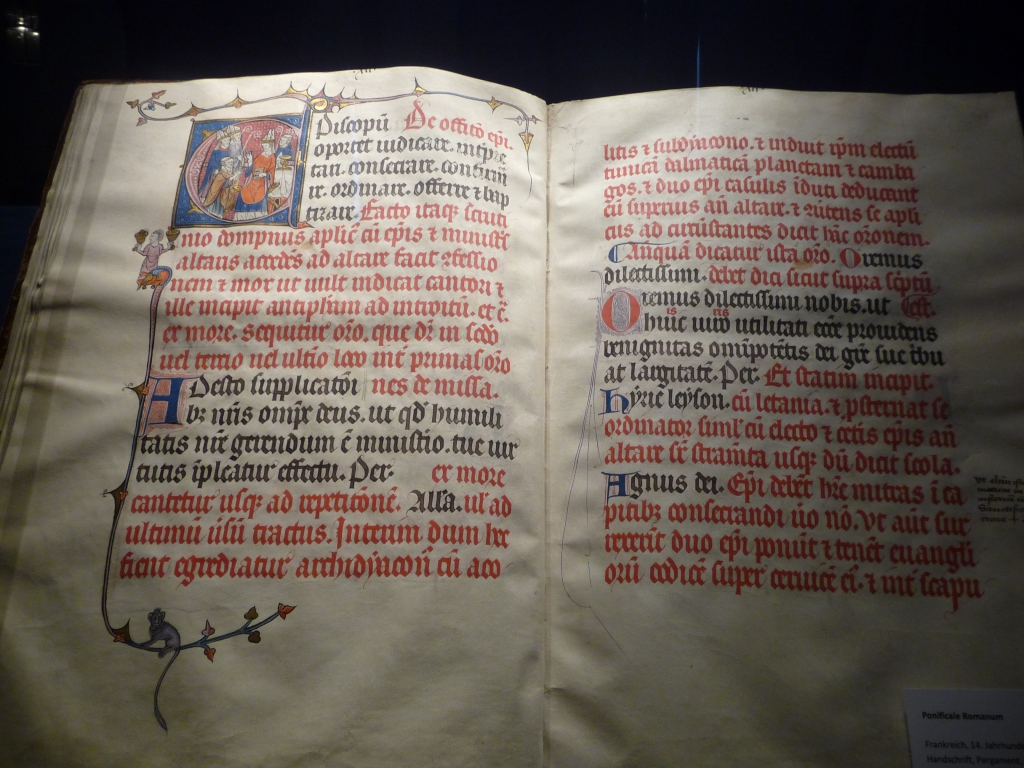 Piscopū De officio epī.
oportet iudicare. interpre
tari. consecrare. confirma
re. ordinare. offerre ⁊ bap
tizare. Facto itaq; scruti
nio dompnus aplic̄ cū epīs ⁊ ministr̄
altaris accedēs ad altare facit ꝯfessio
nem ⁊ mox ut uult indicat cantori ⁊
ille incipit antiphm̄ ad introitū. et c̄.
ex more. Sequitur orō. que dr̄ in scdō
uel tercio uel ultīo loco int̄ primas orō
Adesto supplicatōi nes de missa.
bz nr̄is omp̄r deus. ut qd̄ humili
tatis nr̄e gerendum ē ministīo. tue uir
tutis īpleatur effectu. Per. ex more
cantetur usq; ad repeticionē. All'a. ul' ad
ultimū usū tractus. Interim dum hec
fient egrediatur archidyacon̄ cū aco
litis ⁊ subdyacono. ⁊ induit ip̄m electū
tunicā dalmaticā planetam ⁊ camba
gos. ⁊ duo epī casulis īduti deducunt
cū superius an̄ altare. ⁊ rubens se apli
cus ad circūstantes dicit hāc orōnem.
Tanquā dicatur ista orō. Oremus
dilectissimi. debet dici sicut supra sc̄ptū
Oremus dilectissimi nobis. ut est.
huic uiro utilitati ecc̄e prouidens
is tis
benignitas omīpotētis dei gr̄e sue tbu
at largitatē. Per. Et statim incipit.
Kyrie leyson. cū letania. ⁊ ꝓsternat se
ordinator siml' cū electo ⁊ cet̄is epīs an̄
altare sr̄ stramta usq; dū dicit scola.
Agnus dei. Epī debēt hr̄e mitras ī ca
pitibz consecrandi uō nō. Vt aut̄ sur
rexerit duo epī ponūt ⁊ tenēt euangli
orū codicē super ceruicē eī. ⁊ int̄ scapu
Ponificale Romanum
Frankreich, 14. Jahrhunde
Handschrift, Pergament,